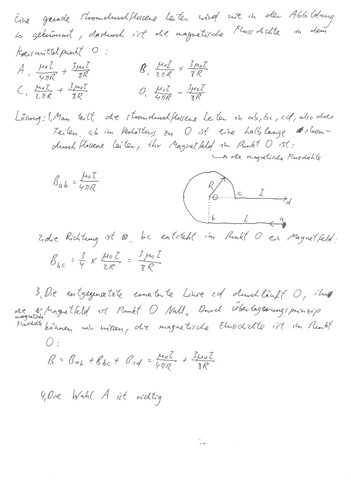 Eine gerade stromdurchflossene Leiter wird wie in der Abbildung
so gekrümmt, dadurch ist die magnetische Flussdichte in dem
Kreismittelpunkt O:
A. μ₀I/4πR + 3μ₀I/8R B. μ₀I/2πR + 3μ₀I/8R
C. μ₀I/2πR + 3μ₀I/8R D. μ₀I/4πR − 3μ₀I/8R
Lösung: 1, Man teilt die stromdurchflossene Leiter in ab, bc, cd, also drei
Teilen. ab im Verhältnis zu O ist eine halblange strom-
durchflossene Leiter, ihr Magnetfeld im Punkt O ist:
die magnetische Flussdichte
B_ab = μ₀I/4πR
R O c I d
b I a
2, die Richtung ist ⊗. bc entsteht im Punkt O ein Magnetfeld.
B_bc = 3/4 × μ₀I/2R = 3μ₀I/8R
3. Die entgegensetzte Linie cd durchläuft O, ihre
die magnetische Flussdichte
Magnetfeld ist Punkt O Null. Durch Überlagerungsprinzip
können wir wissen, die magnetische Flussdichte ist im Punkt
O:
B = B_ab + B_bc + B_cd = μ₀I/4πR + 3μ₀I/8R
4, Die Wahl A ist richtig